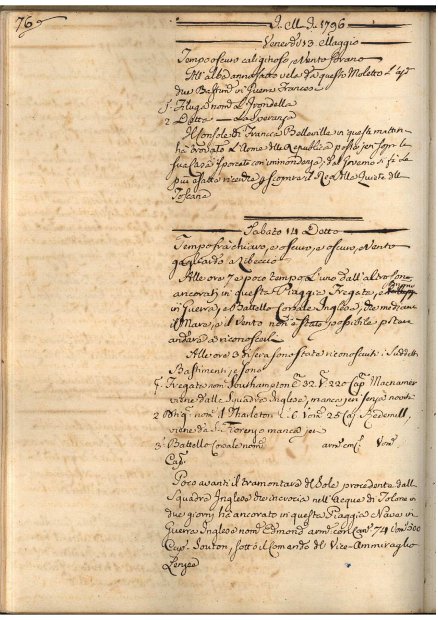 76
A. M. D. 1796
Venerdì 13 Maggio
Tempo oscuro caliginoso, e Vento
All'alba anno fatto vela da questo Moletto l'app.
due Bastim. di Guerra Francesi
1. Filuga nom. L'Irondella
2 Detta — La Speranza
Il Console di Francia Belleville in questa mattina
ha trovato l'Arme della Repubblica posta sopra la
sua Casa sporcate con immondezza, dal Governo si fa la
più esatta ricerca p. scoprire il Reo della Quiete della
Toscana
Sabato 14 Detto
Tempo frà chiaro, e oscuro, e Vento
gagliardo a Libeccio
Alle ore 7 e poco tempo l'uno dall'altro sono
ancorati in questa Piaggia Fregata, e
di Guerra, e Battello Corsale Inglese, che mediante
il Mare, e il Vento non è stato possibile poter
andare a riconoscerli
Alle ore 3 di sera sono stati riconosciuti i suddetti
Bastimenti, e sono
1. Fregata nom. Southampton C. 32. V. 220 Cap. Macnamer
viene dalla Squadra Inglese, manca
2 nom. Il Tharleton Vom. 25 Cap. Redmill,
viene da S. Fiorenzo manca
3. Battello Corsale nom. arm. Vom.
Cap.
Poco avanti il tramontare del Sole procedente dalla
Squadra Inglese che incrocia nell'Acque di Tolone in
due giorni ha ancorato in questa Piaggia Nave di
Guerra Inglese nom. Edmond arm. con Can. 74 Vom. 500
Cap. Souton, sotto il Comando del Vice-Ammiraglio